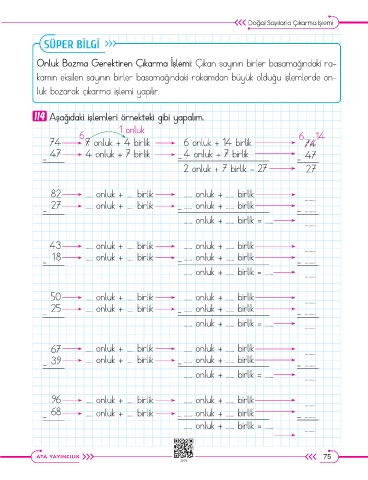 Doğal Sayılarla Çıkarma İşlemi
SÜPER BİLGİ
Onluk Bozma Gerektiren Çıkarma İşlemi: Çıkan sayının birler basamağındaki ra-
kamın eksilen sayının birler basamağındaki rakamdan büyük olduğu işlemlerde on-
luk bozarak çıkarma işlemi yapılır.
114 Aşağıdaki işlemleri örnekteki gibi yapalım.
6 1 onluk 6 14
74 7 onluk + 4 birlik 6 onluk + 14 birlik 74
- 47 4 onluk + 7 birlik - 4 onluk + 7 birlik - 47
2 onluk + 7 birlik = 27 27
82 ... onluk + ... birlik ... onluk + ... birlik ......
- 27 ... onluk + ... birlik - ... onluk + ... birlik - ......
... onluk + ... birlik = ... ......
43 ... onluk + ... birlik ... onluk + ... birlik ......
- 18 ... onluk + ... birlik - ... onluk + ... birlik - ......
... onluk + ... birlik = ... ......
50 ... onluk + ... birlik ... onluk + ... birlik ......
- 25 ... onluk + ... birlik - ... onluk + ... birlik - ......
... onluk + ... birlik = ... ......
67 ... onluk + ... birlik ... onluk + ... birlik ......
- 39 ... onluk + ... birlik - ... onluk + ... birlik - ......
... onluk + ... birlik = ... ......
96 ... onluk + ... birlik ... onluk + ... birlik ......
- 68 ... onluk + ... birlik - ... onluk + ... birlik - ......
... onluk + ... birlik = ... ......
ATA YAYINCILIK 75